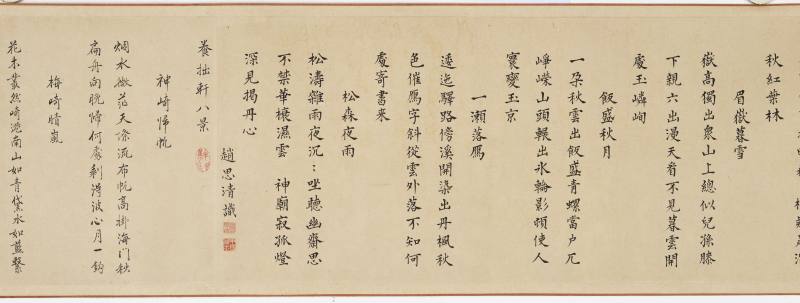 秋紅葉林
眉嶽暮雪
嶽高獨出衆山上總似兒孫膝
下親六出漫天看不見暮雲開
處玉嶙峋
飯盛秋月
一朶秋雲出飯盛青螺當户兀
崢嶸山頭輾出氷輪影頓使人
寰變玉京
一瀬落鴈
逶迤驛路傍溪開染出丹楓秋
色催鴈字斜從雲外落不知何
處寄書来
松森夜雨
松濤雜雨夜沉:坐聽幽齋思
不禁華榱濕雲神廟寂孤燈
深見揭丹心
趙思清識
養拙軒八景
神崎歸帆
烟水微茫天際流布帆高掛海門秋
扁舟向晚歸何處剩得波心月一鈎
梅崎晴嵐
花木叢然崎港南山如青黛水如藍繫